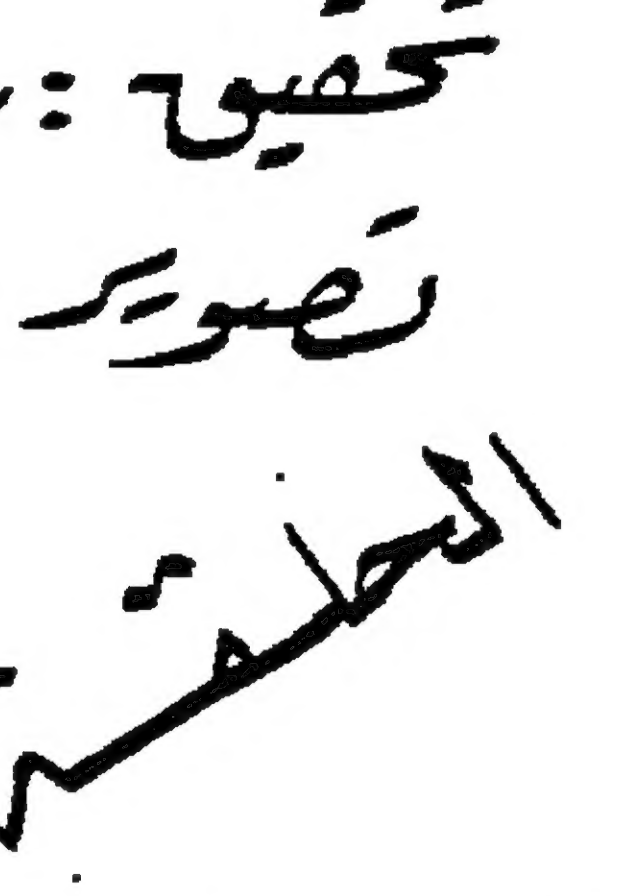 تحقيق :
تصوير
الحلقة